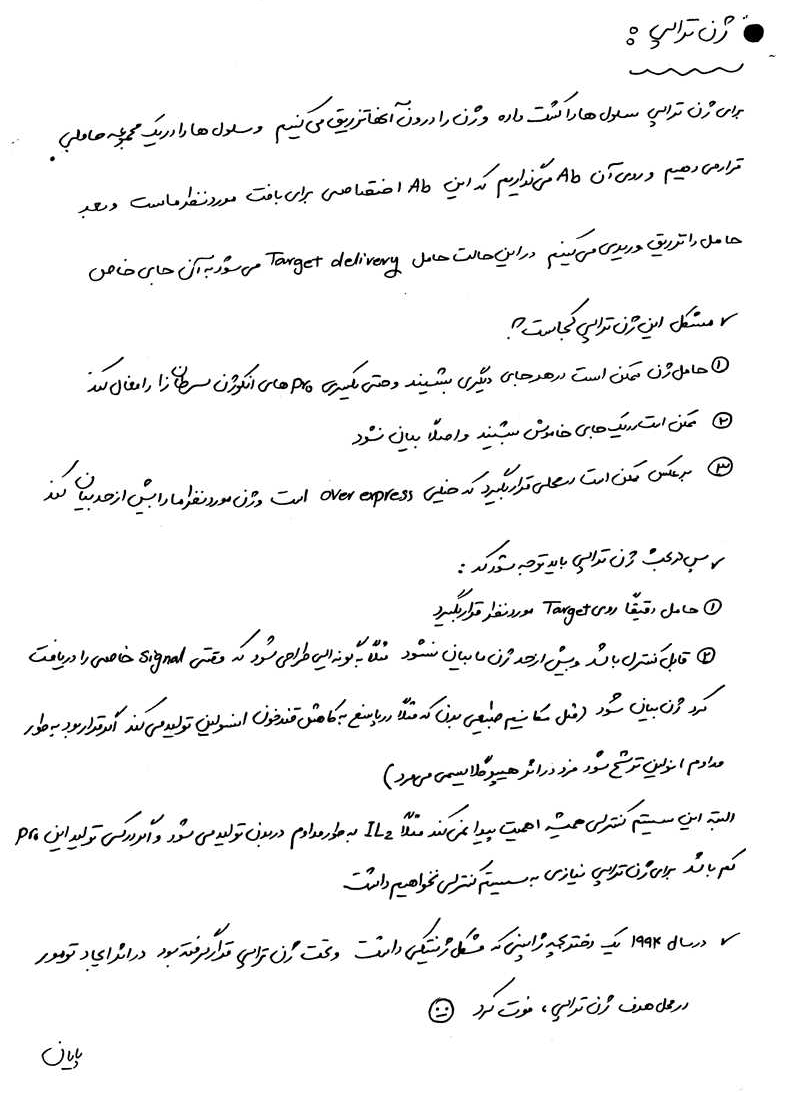 ژن تراپی :
برای ژن تراپی سلول ها را کشت داده و ژن را درون آنها تزریق می کنیم و سلول ها را در یک مجموعه حاملی
قرار می دهیم و روی آن Ab می گذاریم که این Ab اختصاصی برای بافت مورد نظر ماست و بعد
حامل را تزریق وریدی می کنیم در این حالت حامل Target delivery می شود به آن جای خاص
✓ مشکل این ژن تراپی کجاست؟!
① حامل ژن ممکن است در هر جای دیگری بنشیند و حتی بگیری pro های انکوژن سرطان زا را فعال کند
② ممکن است در یک جای خاموش بنشیند و اصلاً بیان نشود
③ برعکس ممکن است در محلی قرار بگیرد که خیلی over express است و ژن مورد نظر ما را بیش از حد بیان کند
✓ پس در بحث ژن تراپی باید توجه شود که :
① حامل دقیقاً روی Target مورد نظر قرار بگیرد
② قابل کنترل باشد و بیش از حد ژن ما بیان نشود مثلاً به گونه ایی طراحی شود که وقتی signal خاصی را دریافت
کرد ژن بیان شود (مثل مکانیسم طبیعی بدن که مثلاً در پاسخ به کاهش قند خون انسولین تولید می کند اگر قرار بود به طور
مداوم انسولین ترشح شود فرد در اثر هیپوگلایسمی می مرد)
البته این سیستم کنترلی همیشه اهمیت پیدا نمی کند مثلاً IL2 به طور مداوم در بدن تولید می شود و اگر در کسی تولید این pro
کم باشد برای ژن تراپی نیازی به سیستم کنترلی نخواهیم داشت
✓ در سال ۱۹۹۴ یک دختر بچه ژاپنی که مشکل ژنتیکی داشت و تحت ژن تراپی قرار گرفته بود در اثر ایجاد تومور
در محل هدف ژن تراپی، فوت کرد
پایان